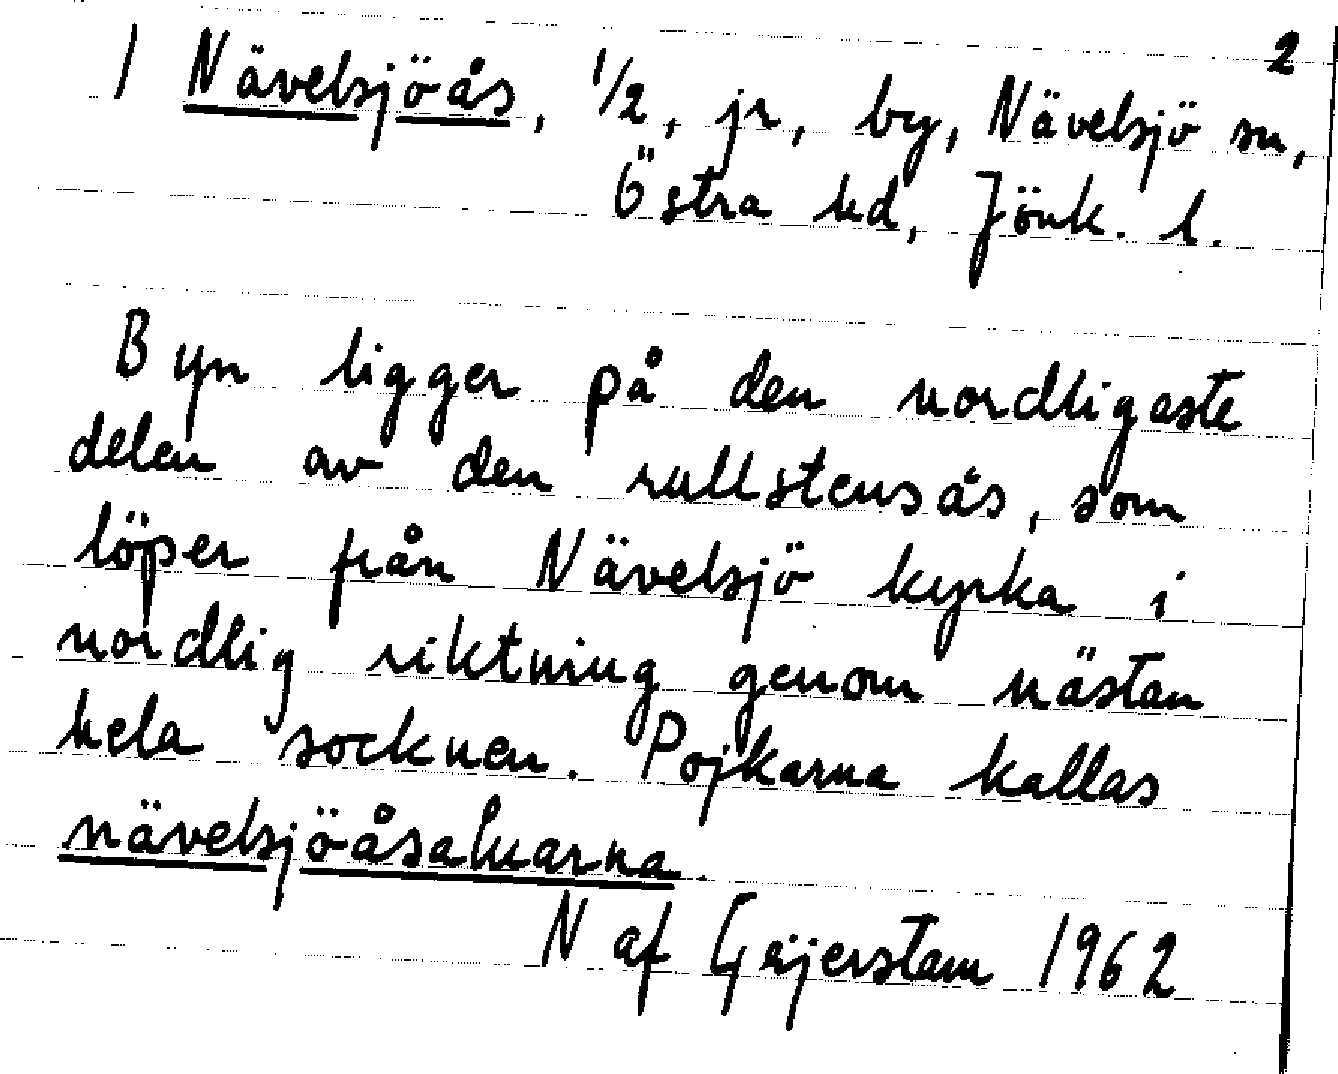 2
1 Nävelsjöås, 1/2, jr, by, Nävelsjö sn,
Östra hd, Jönk. l.
Byn ligger på den nordligaste
delen av den rullstensås, som
löper från Nävelsjö kyrka i
nordlig riktning genom nästan
hela socknen. Pojkarna kallas
nävelsjöåsaluarna.
N af Geijerstam 1962